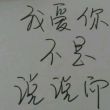 我爱你
不是
说说而